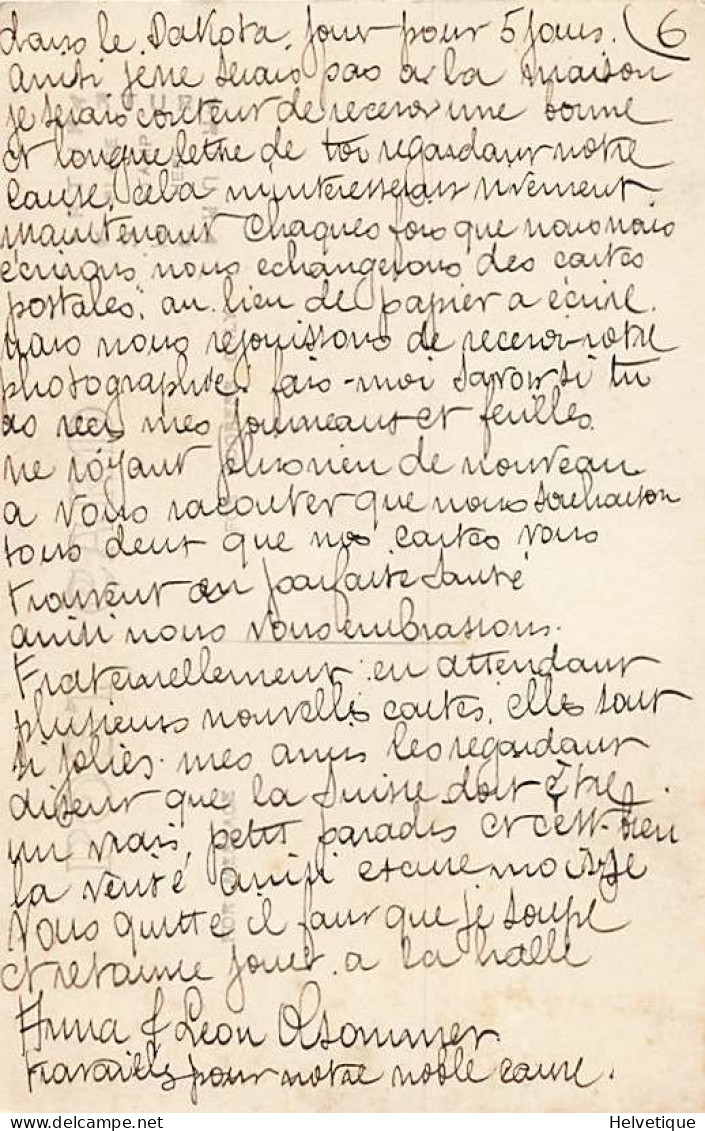 dans le Dakota, jouer pour 5 jours. 6
ainsi je ne serais pas a la maison
je serais content de recevoir une bonne
et longue lettre de toi regardant notre
cause, cela m'interesserais vivement
maintenant chaques fois que nous nous
écrirons nous echangerons des cartes
postales, au lieu de papier a écrire.
nous nous rejouissons de recevoir votre
photographie. fais-moi savoir si tu
as recu mes journeaux et feuilles.
ne voyant plus rien de nouveau
a vous raconter que nous souhaiton
tous deux que nos cartes vous
trouvent en parfaite santé
ainsi nous vous embrassons.
Fraternellement en attendant
plusieurs nouvelles cartes, elles sont
si jolies. mes amis les regardant
disent que la Suisse doit être
un vrais, petit paradis et c'est bien
la verité ainsi excuse moi je
vous quitte il faut que je soupe
et retourne jouer a la halle
Anna & Léon Olsommer
travailles pour notre noble cause.
Helvetique